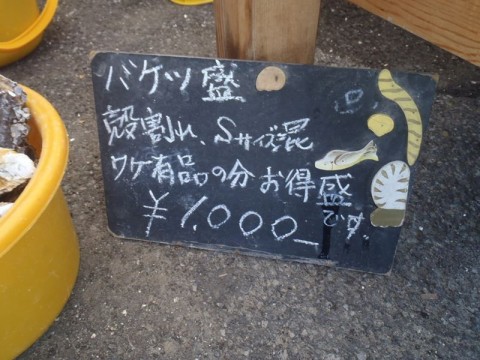 バケツ盛
殻割れ、Sサイズ混
ワケ有品の分お得盛
です!!
¥1,000_